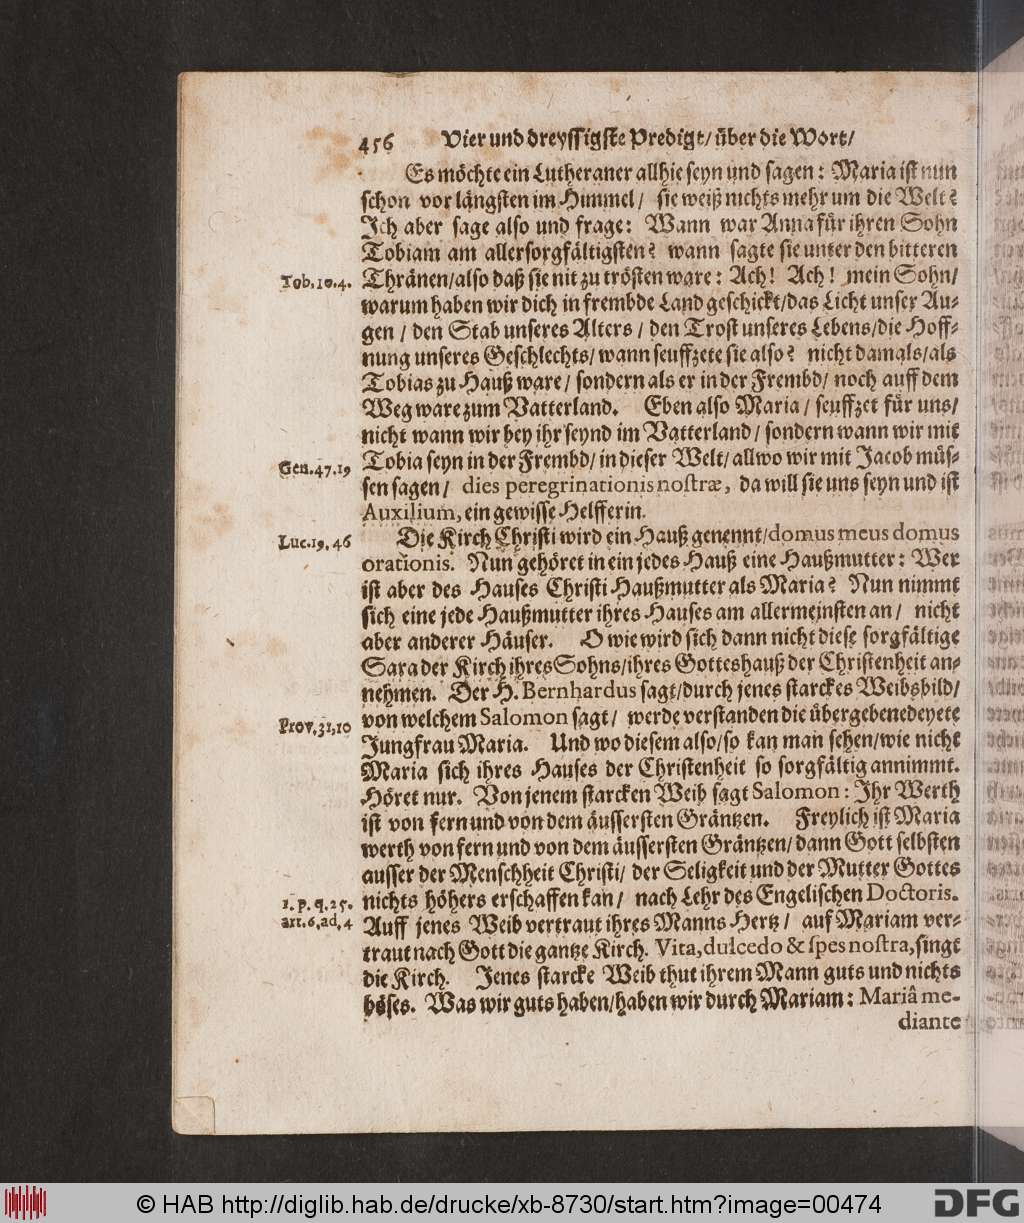 456 Vier und dreyssigste Predigt/ über die Wort/
Es möchte ein Lutheraner allhie seyn und sagen: Maria ist nun
schon vor längsten im Himmel/ sie weiß nichts mehr um die Welt?
Ich aber sage also und frage: Wann war Anna für ihren Sohn
Tobiam am allersorgfältigsten? wann sagte sie unter den bitteren
Tob. 10. 4.
Thränen/also daß sie nit zu trösten ware: Ach! Ach! mein Sohn/
warum haben wir dich in frembde Land geschickt/das Licht unser Au-
gen / den Stab unseres Alters / den Trost unseres Lebens/die Hoff-
nung unseres Geschlechts/ wann seuffzete sie also? nicht damals/als
Tobias zu Hauß ware/ sondern als er in der Frembd/ noch auff dem
Weg ware zum Vatterland. Eben also Maria/ seuffzet für uns/
nicht wann wir bey ihr seynd im Vatterland/ sondern wann wir mit
Gen. 47. 19
Tobia seyn in der Frembd/ in dieser Welt/ allwo wir mit Jacob müs-
sen sagen/ dies peregrinationis nostræ, da will sie uns seyn und ist
Auxilium, ein gewisse Helfferin.
Luc. 19. 46
Die Kirch Christi wird ein Hauß genennt/domus meus domus
orationis. Nun gehöret in ein jedes Hauß eine Haußmutter: Wer
ist aber des Hauses Christi Haußmutter als Maria? Nun nimmt
sich eine jede Haußmutter ihres Hauses am allermeinsten an/ nicht
aber anderer Häuser. O wie wird sich dann nicht diese sorgfältige
Sara der Kirch ihres Sohns/ihres Gotteshauß der Christenheit an-
nehmen. Der H. Bernhardus sagt/durch jenes starckes Weibsbild/
Prov. 31, 10
von welchem Salomon sagt/ werde verstanden die übergebenedeyete
Jungfrau Maria. Und wo diesem also/so kan man sehen/wie nicht
Maria sich ihres Hauses der Christenheit so sorgfältig annimmt.
Höret nur. Von jenem starcken Weib sagt Salomon: Ihr Werth
ist von fern und von dem äussersten Gräntzen. Freylich ist Maria
werth von fern und von dem äussersten Gräntzen/ dann Gott selbsten
ausser der Menschheit Christi/ der Seligkeit und der Mutter Gottes
1. p. q. 25.
nichts höhers erschaffen kan/ nach Lehr des Engelischen Doctoris.
art. 6, ad, 4
Auff jenes Weib vertraut ihres Manns Hertz/ auf Mariam ver-
traut nach Gott die gantze Kirch. Vita, dulcedo & spes nostra, singt
die Kirch. Jenes starcke Weib thut ihrem Mann guts und nichts
böses. Was wir guts haben/haben wir durch Mariam: Mariâ me-
diante
© HAB http://diglib.hab.de/drucke/xb-8730/start.htm?image=00474
DFG